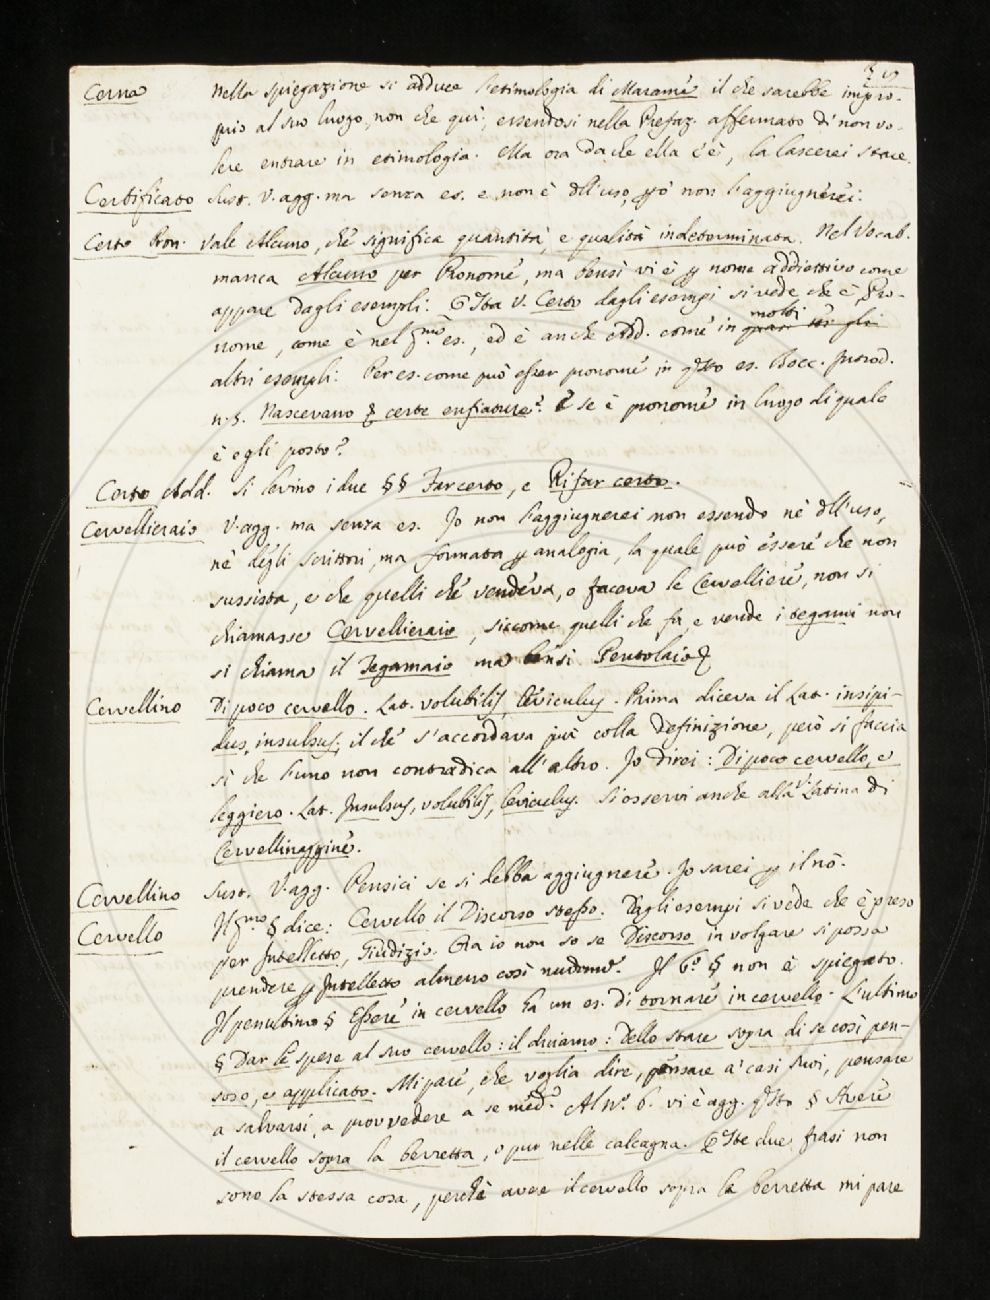 Cerna Nella spiegazione si adduce l'etimologia di Marame, il che sarebbe impro-
prio al suo luogo, non che qui, essendosi nella Prefaz. affermato di non vo-
lere entrare in etimologia. Ma ora da che ella c'è, la lascerei stare.
Certificato Sust. V. agg. ma senza es. e non è dll'uso, però non l'aggiugnerei.
Certo Pron. Vale Alcuno, che significa quantità, e qualità indeterminata. Nel Vocab.
manca Alcuno per Pronome, ma bensì vi è p nome addiettivo come
appare dagli esempli. Qsta V. Certo dagli esempi si vede che è Pro-
nome, come è nel pmo. es., ed è anche Add. come in molti
altri esempli. Per es. come può esser pronome in qsto es. Bocc. Introd.
n. 5. Nascevano & certe enfiature? E se è pronome in luogo di quale
è egli posto?
Certo Add. Si levino i due §§ Far certo, e Rifar certo.
Cervellieraio V. agg. ma senza es. Io non l'aggiugnerei non essendo nè dll'uso,
nè degli scrittori, ma formata p analogia, la quale può essere che non
sussista, e che quelli che vendeva, o faceva le Cervelliere, non si
chiamasse Cervellieraio, siccome quelli che fa, e vende i tegami non
si chiama il Tegamaio ma bensi Pentolaio &
Cervellino Di poco cervello. Lat. volubilis, leviculus. Prima diceva il Lat. insipi-
dus, insulsus; il che s'accordava più colla definizione, però si faccia
sì che l'uno non contradica all'altro. Io direi: Di poco cervello, e
leggiero. Lat. Insulsus, volubilis, leviculus. Si osservi anche alla V. Latina di
Cervellinaggine.
Cervellino Sust. V. agg. Pensici se si debba aggiugnere. Io sarei p il nò.
Cervello Il pmo § dice: Cervello il Discorso stesso. Dagli esempi si vede che è preso
per Intelletto, Giudizio. Ora io non so se Discorso in volgare si possa
prendere p Intelletto almeno così nudame. Il 6.º § non è spiegato.
Il penultimo § Essere in cervello ha un es. di tornare in cervello. L'ultimo
§ Dar le spese al suo cervello: il diciamo: Dello stare sopra di se così pen-
soso, e applicato. Mi pare, che voglia dire, pensare a' casi suoi, pensare
a salvarsi, a provvedere a se med.º Al N.º 6. vi è agg. qsto § Avere
il cervello sopra la berretta, o pur nelle calcagna. Qste due frasi non
sono la stessa cosa, perchè avere il cervello sopra la berretta mi pare